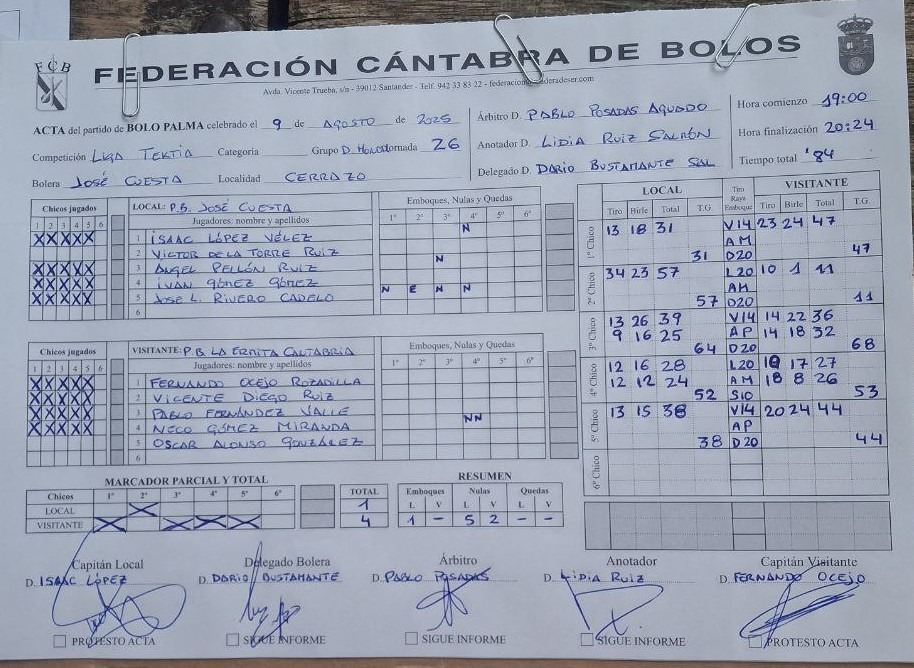 FCB
FEDERACIÓN CÁNTABRA DE BOLOS
Avda. Vicente Trueba, s/n - 39012 Santander - Telf. 942 33 83 22 -
ACTA del partido de BOLO PALMA celebrado el 9 de AGOSTO de 2025
Competición LIGA TERTIA Categoria Grupo D. HONOR Jornada 26
Bolera JOSÉ CUESTA Localidad CERRAZO
Árbitro D. PABLO POSADAS AGUADO
Anotador D. LIDIA RUIZ SALMÓN
Delegado D. DARIO BUSTAMANTE SAL
Hora comienzo 19:00
Hora finalización 20:24
Tiempo total '84
Chicos jugados
1 2 3 4 5 6
X X X X X
X X X X X
X X X X X
X X X X X
LOCAL: P.B. JOSÉ CUESTA
Jugadores: nombre y apellidos
1 ISAAC LÓPEZ VÉLEZ
2 VICTOR DE LA TORRE RUIZ
3 ANGEL PELLÓN RUIZ
4 IVAN GÓMEZ GÓMEZ
5 JOSE L. RIVERO CADELO
6
Emboques, Nulas y Quedas
1º 2º 3º 4º 5º 6º
N
N
N E N N
Chicos jugados
1 2 3 4 5 6
X X X X X
X X X X X
X X X X X
X X X X X
VISITANTE: P.B. LA ERMITA CANTABRIA
Jugadores: nombre y apellidos
1 FERNANDO OCEJO ROZADILLA
2 VICENTE DIEGO RUIZ
3 PABLO FERNÁNDEZ VALLE
4 NECO GÓMEZ MIRANDA
5 OSCAR ALONSO GONZÁLEZ
6
Emboques, Nulas y Quedas
1º 2º 3º 4º 5º 6º
NN
LOCAL Tiro Raya Emboque VISITANTE
Tiro Birle Total T.G. Tiro Birle Total T.G.
1º Chico
13 18 31 V14 23 24 47
AM
31 D20 47
2º Chico
34 23 57 L20 10 1 11
AM
57 D20 11
3º Chico
13 26 39 V14 14 22 36
9 16 25 AP 14 18 32
64 D20 68
4º Chico
12 16 28 L20 10 17 27
12 12 24 AM 18 8 26
52 S10 53
5º Chico
13 15 38 V14 20 24 44
AP
38 D20 44
6º Chico
MARCADOR PARCIAL Y TOTAL
Chicos 1º 2º 3º 4º 5º 6º TOTAL
LOCAL X 1
VISITANTE X X X X 4
RESUMEN
Emboques Nulas Quedas
L V L V L V
1 - 5 2 - -
Capitán Local
D. ISAAC LÓPEZ
PROTESTO ACTA
Delegado Bolera
D. DARIO BUSTAMANTE
SIGUE INFORME
Árbitro
D. PABLO POSADAS
SIGUE INFORME
Anotador
D. LIDIA RUIZ
SIGUE INFORME
Capitán Visitante
D. FERNANDO OCEJO
PROTESTO ACTA